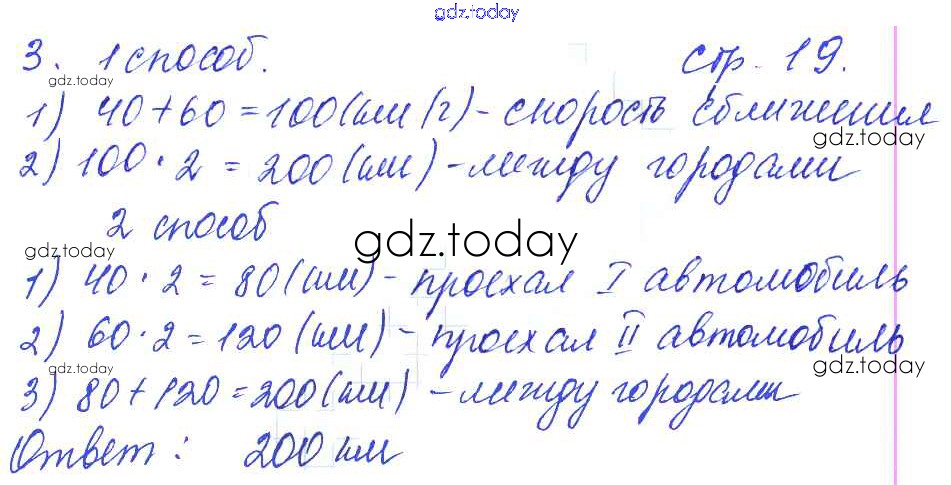 gdz.today
3. 1 способ. стр. 19.
gdz.today
1) 40+60=100(км/г)-скорость сближения
gdz.today
2) 100·2=200(км)-между городами
2 способ
gdz.today
gdz.today
1) 40·2=80(км)-проехал I автомобиль
2) 60·2=120(км)-проехал II автомобиль
gdz.today
gdz.today
3) 80+120=200(км)-между городами
Ответ: 200 км